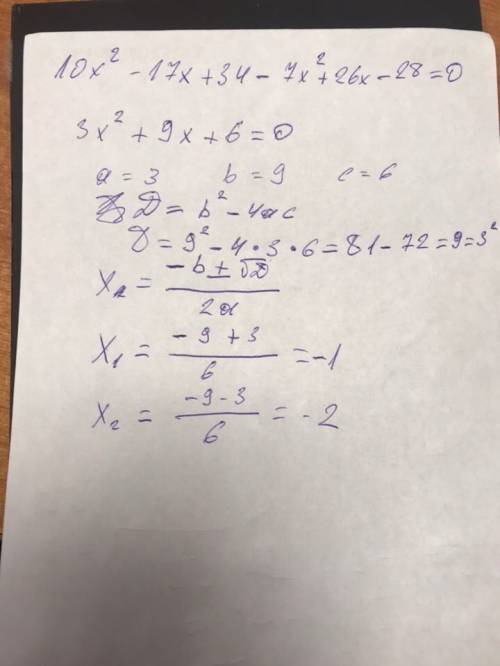 10x² - 17x + 34 - 7x² + 26x - 28 = 0
3x² + 9x + 6 = 0
a = 3 b = 9 c = 6
D = b² - 4ac
D = 9² - 4 · 3 · 6 = 81 - 72 = 9 = 3²
x = (-b ± √D) / 2a
x₁ = (-9 + 3) / 6 = -1
x₂ = (-9 - 3) / 6 = -2